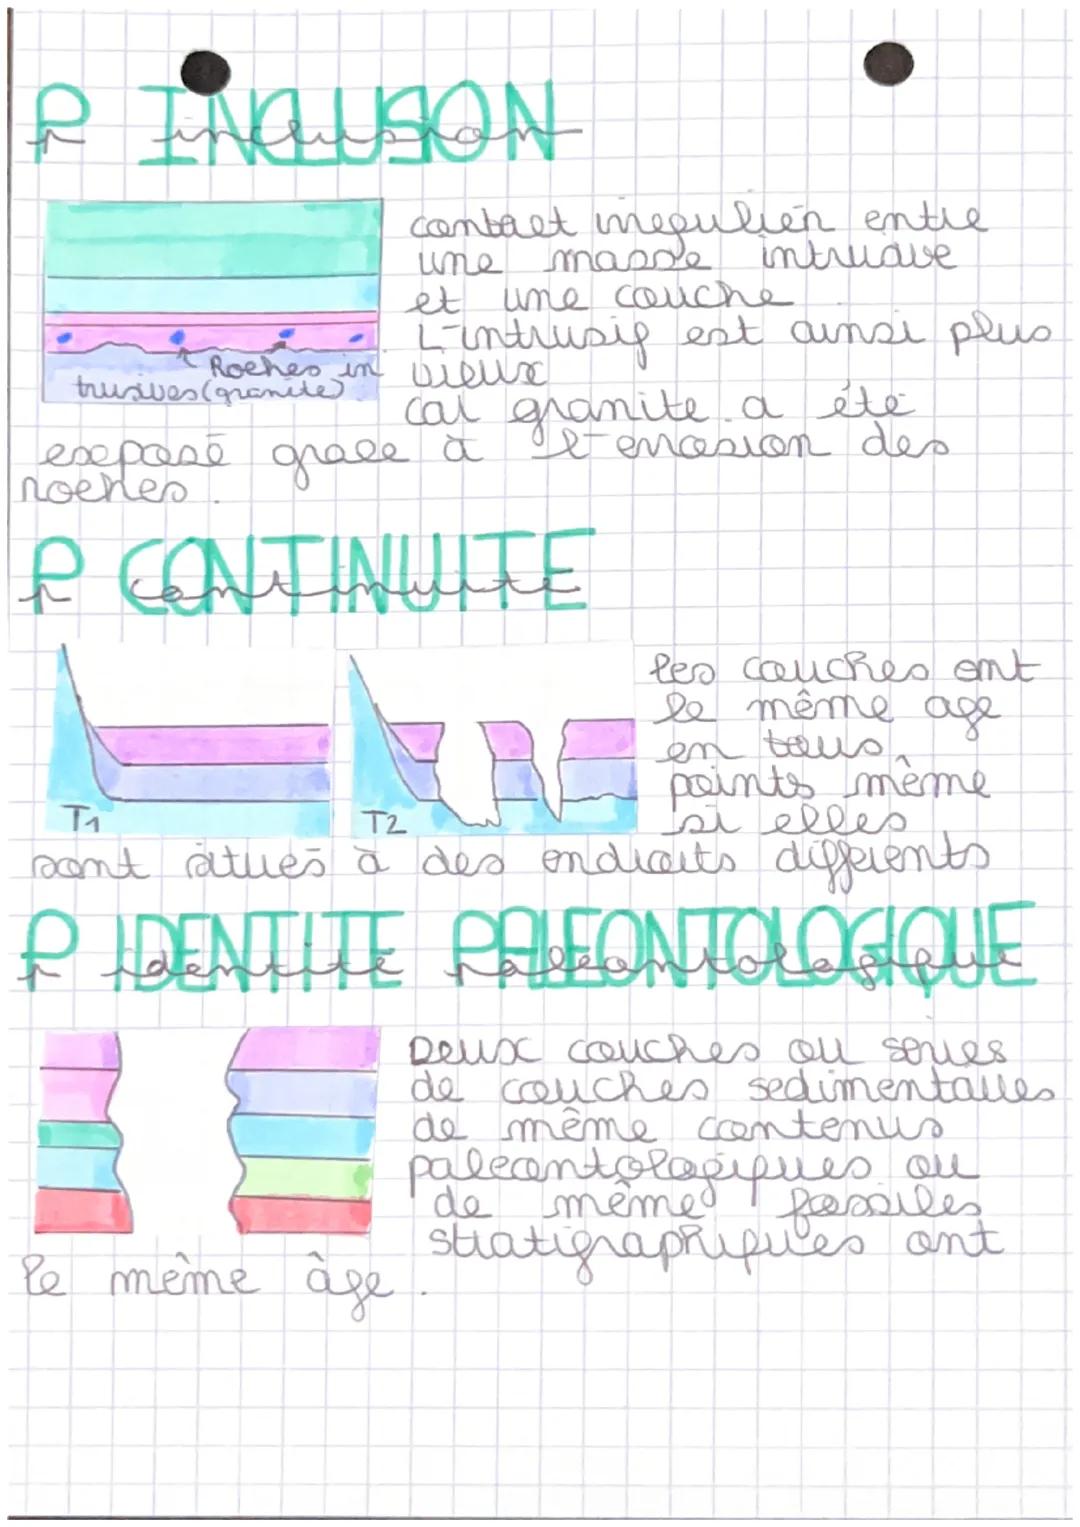 P INCLUSON
P inclusion
contact irregulier entre
une masse intrusive
et une couche
L'intrusif est ainsi plus
vieux
Roches in
trusives (granite)
car granite a été
exposé grace à l'errosion des
roches.
P CONTINUITE
P continuité
les couches ont
le même age
en tous
points même
si elles
T1
T2
sont situés à des endroits différents
P IDENTITE PALEONTOLOGIQUE
P identité Paléontologique
Deux couches ou series
de couches sedimentaires
de même contenus
paléontologiques ou
de même fossiles
stratigraphiques ont
le même âge.